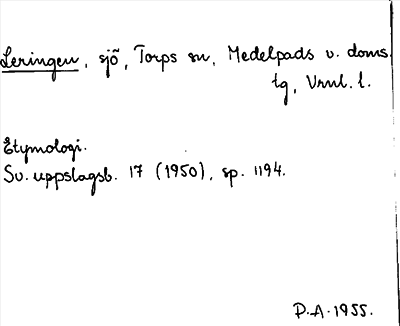 Leringen, sjö, Torps sn, Medelpads v. doms.
tg, Vrnl. l.
Etymologi.
Sv. uppslagsb. 17 (1950), sp. 1194.
P.A. 1955.